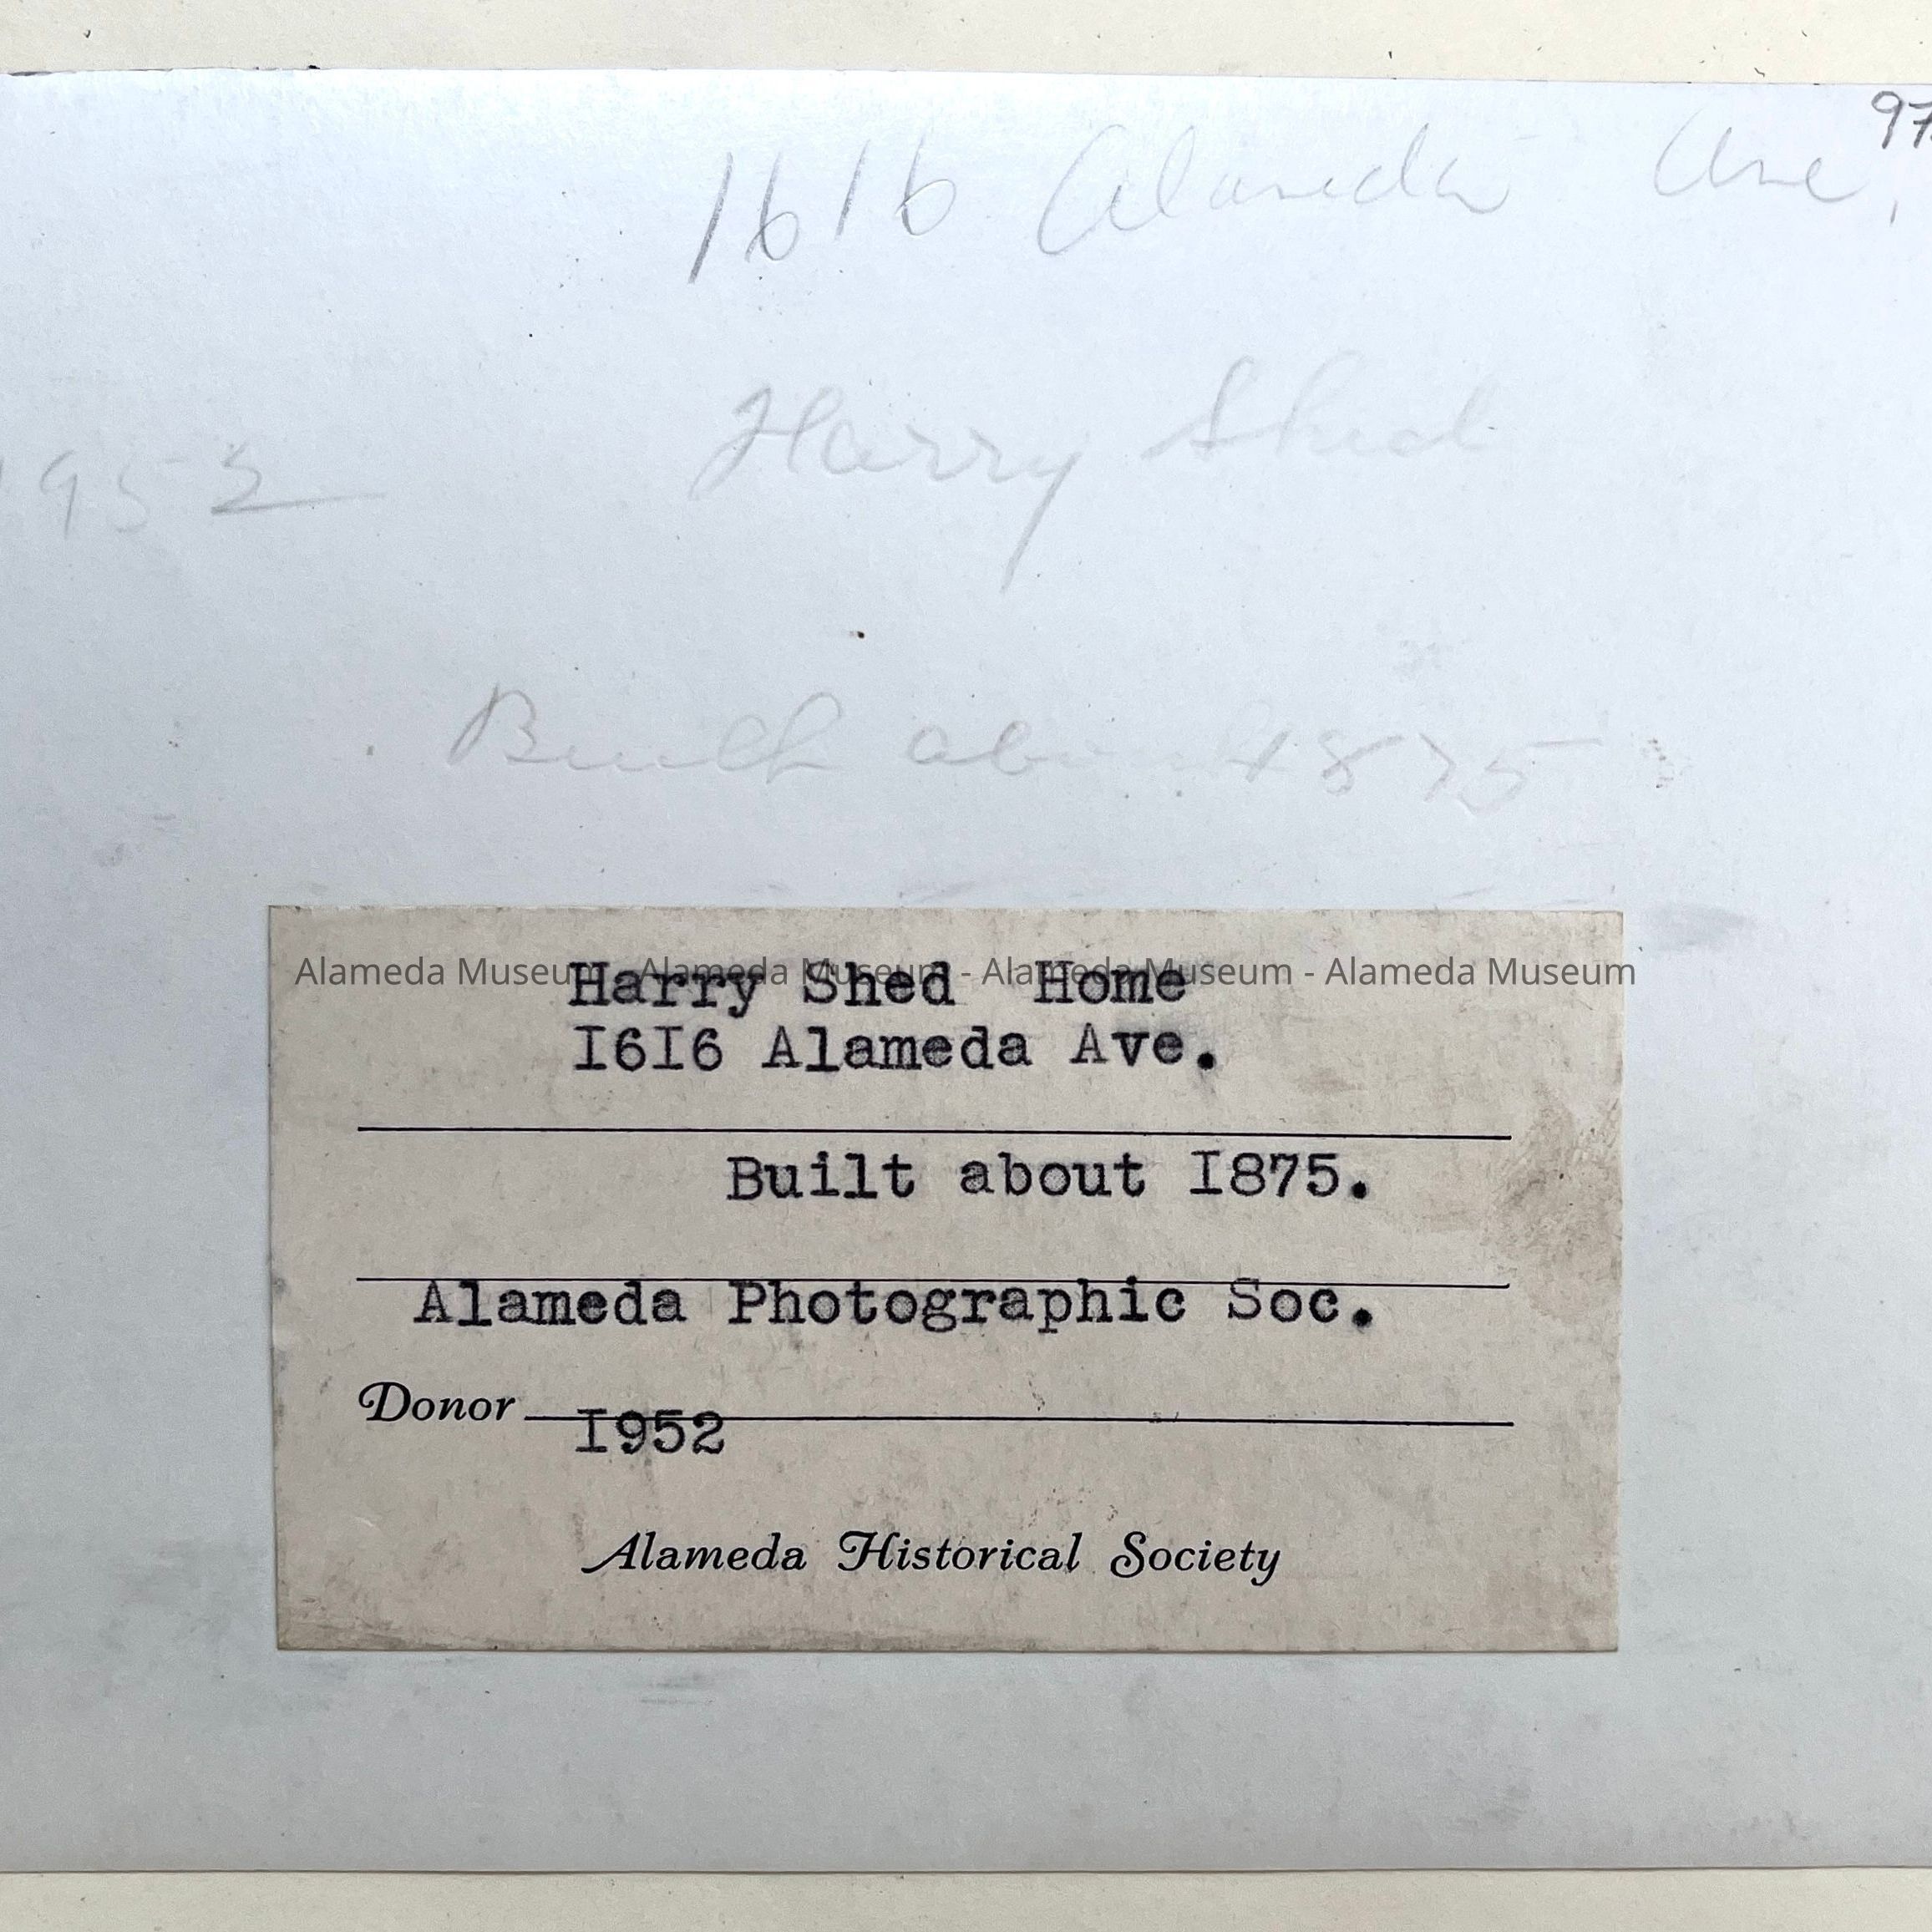 97
1616 Alameda Ave,
Harry Shed
1952
Built about 1875
Alameda Museum - Alameda Museum - Alameda Museum - Alameda Museum
Harry Shed Home
I6I6 Alameda Ave.
Built about I875.
Alameda Photographic Soc.
Donor
I952
Alameda Historical Society